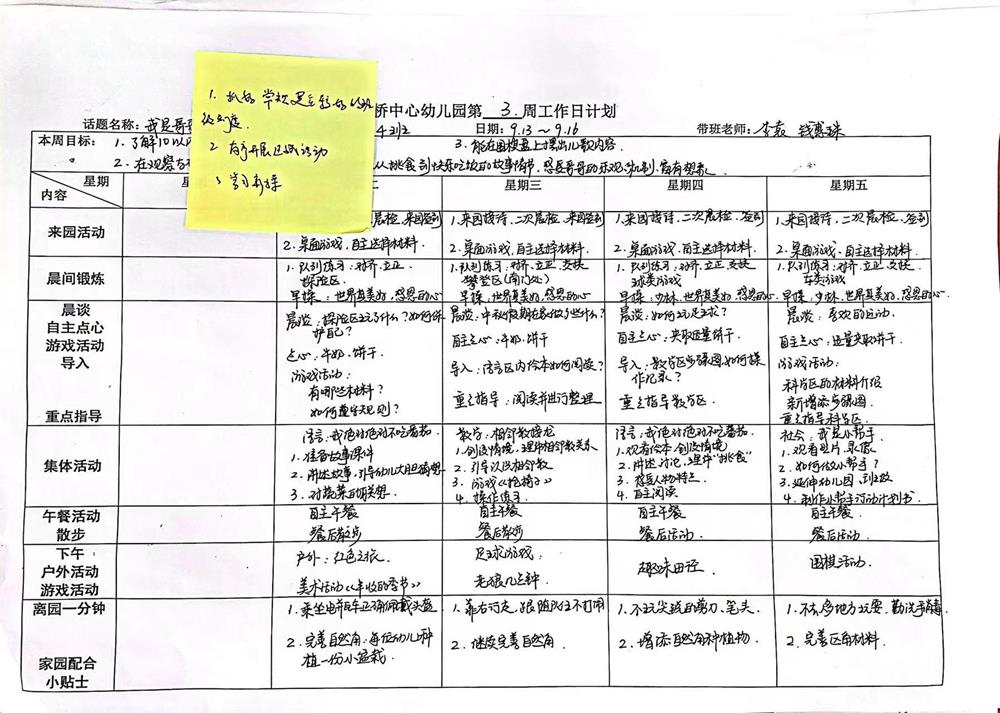 1. 抓好
2 有序开展区域活动
3 学习新操
桥中心幼儿园第 3.周工作日计划
话题名称:
日期:9.13~9.16
带班老师:
本周目标:1、了解10以内
3、能在围棋盘上摆出儿歌内容.
2、在观察
从挑食到快乐吃饭的故事情节,
星期
内容
星期三
星期四
星期五
来园活动
晨检、来园签到
2.桌面游戏,自主选择材料.
1.来园接待、二次晨检、来园签到
2.桌面游戏、自主选择材料.
1.来园接待、二次晨检、签到
2.桌面游戏、自主选择材料.
1.来园接待、二次晨检、签到
2.桌面游戏、自主选择材料.
晨间锻炼
1.队列练习:对齐、立正.
探险区
早操:世界真美好,感恩的心
1.队列练习:对齐、立正、交换
攀登区(南门处)
早操:世界真美好,感恩的心
1.队列练习:对齐、立正、交换
球类游戏
早操:少林、世界真美好,感恩的心
1.队列练习:对齐、立正、交换
车类游戏
早操:少林、世界真美好,感恩的心
晨谈
自主点心
游戏活动
导入
重点指导
晨谈:探险区玩了什么?如何保
护自己?
点心:牛奶、饼干
游戏活动:
有哪些材料?
如何遵守规则?
晨谈:中秋假期在家做了些什么?
自主点心:牛奶、饼干
导入:语言区内绘本如何阅读?
重点指导:阅读并进行整理
晨谈:如何玩足球?
自主点心:夹取适量饼干
导入:数学区步骤图如何操
作记录?
重点指导数学区.
晨谈:喜欢的运动
自主点心:适量夹取饼干
游戏活动:
科学区的材料介绍
新增添步骤图.
重点指导科学区.
集体活动
语言:我绝对绝对不吃番茄.
1.准备故事课件
2.讲述故事,引导幼儿大胆猜想
3.对蔬菜的联想.
数学:相邻数接龙
1.创设情境,理解相邻数关系
2.引导认识相邻数
3.游戏《抢椅子》
4.操作练习.
语言:我绝对绝对不吃番茄.
1.观看绘本,创设情境
2.讲述讨论,理解"挑食"
3.感受人物特点
4.自主阅读
社会:我是小帮手.
1.观看照片、录像
2.如何做小帮手?
3.延伸幼儿园,到班级
4.制作小帮手活动计划书.
午餐活动
散步
自主午餐
餐后散步
自主午餐
餐后散步
自主午餐
餐后活动.
自主午餐
餐后活动.
下午
户外活动
游戏活动
户外:红色之旅
美术活动《丰收的季节》
足球游戏.
老狼几点钟.
趣味田径
围棋活动.
离园一分钟
家园配合
小贴士
1.乘坐电瓶车正确佩戴头盔
2.完善自然角:每位幼儿种
植一份小盆栽.
1.靠右行走,跟随队伍不打闹
2.继续完善自然角
1.不玩尖锐的剪刀、笔头.
2.增添自然角种植物.
1.不去人多地方玩耍,勤洗手消毒
2.完善区角材料.